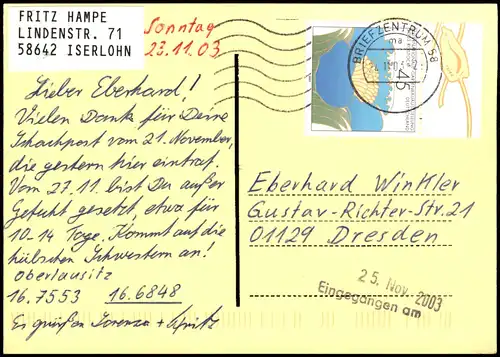 FRITZ HAMPE
LINDENSTR. 71
58642 ISERLOHN
Sonntag
23.11.03
Lieber Eberhard!
Vielen Dank für Deine
Schachpost vom 21. November,
die gestern hier eintraf.
Vom 27.11. bist Du außer
Gefecht gesetzt, etwa für
10-14 Tage. Kommt auf die
hübschen Schwestern an!
Oberlausitz
16.7553 16.6848
Es grüßen Lorenza + Fritz
BRIEFZENTRUM 58
45
Eberhard Winkler
Gustav-Richter-Str.21
01129 Dresden
25. Nov. 2003
Eingegangen am